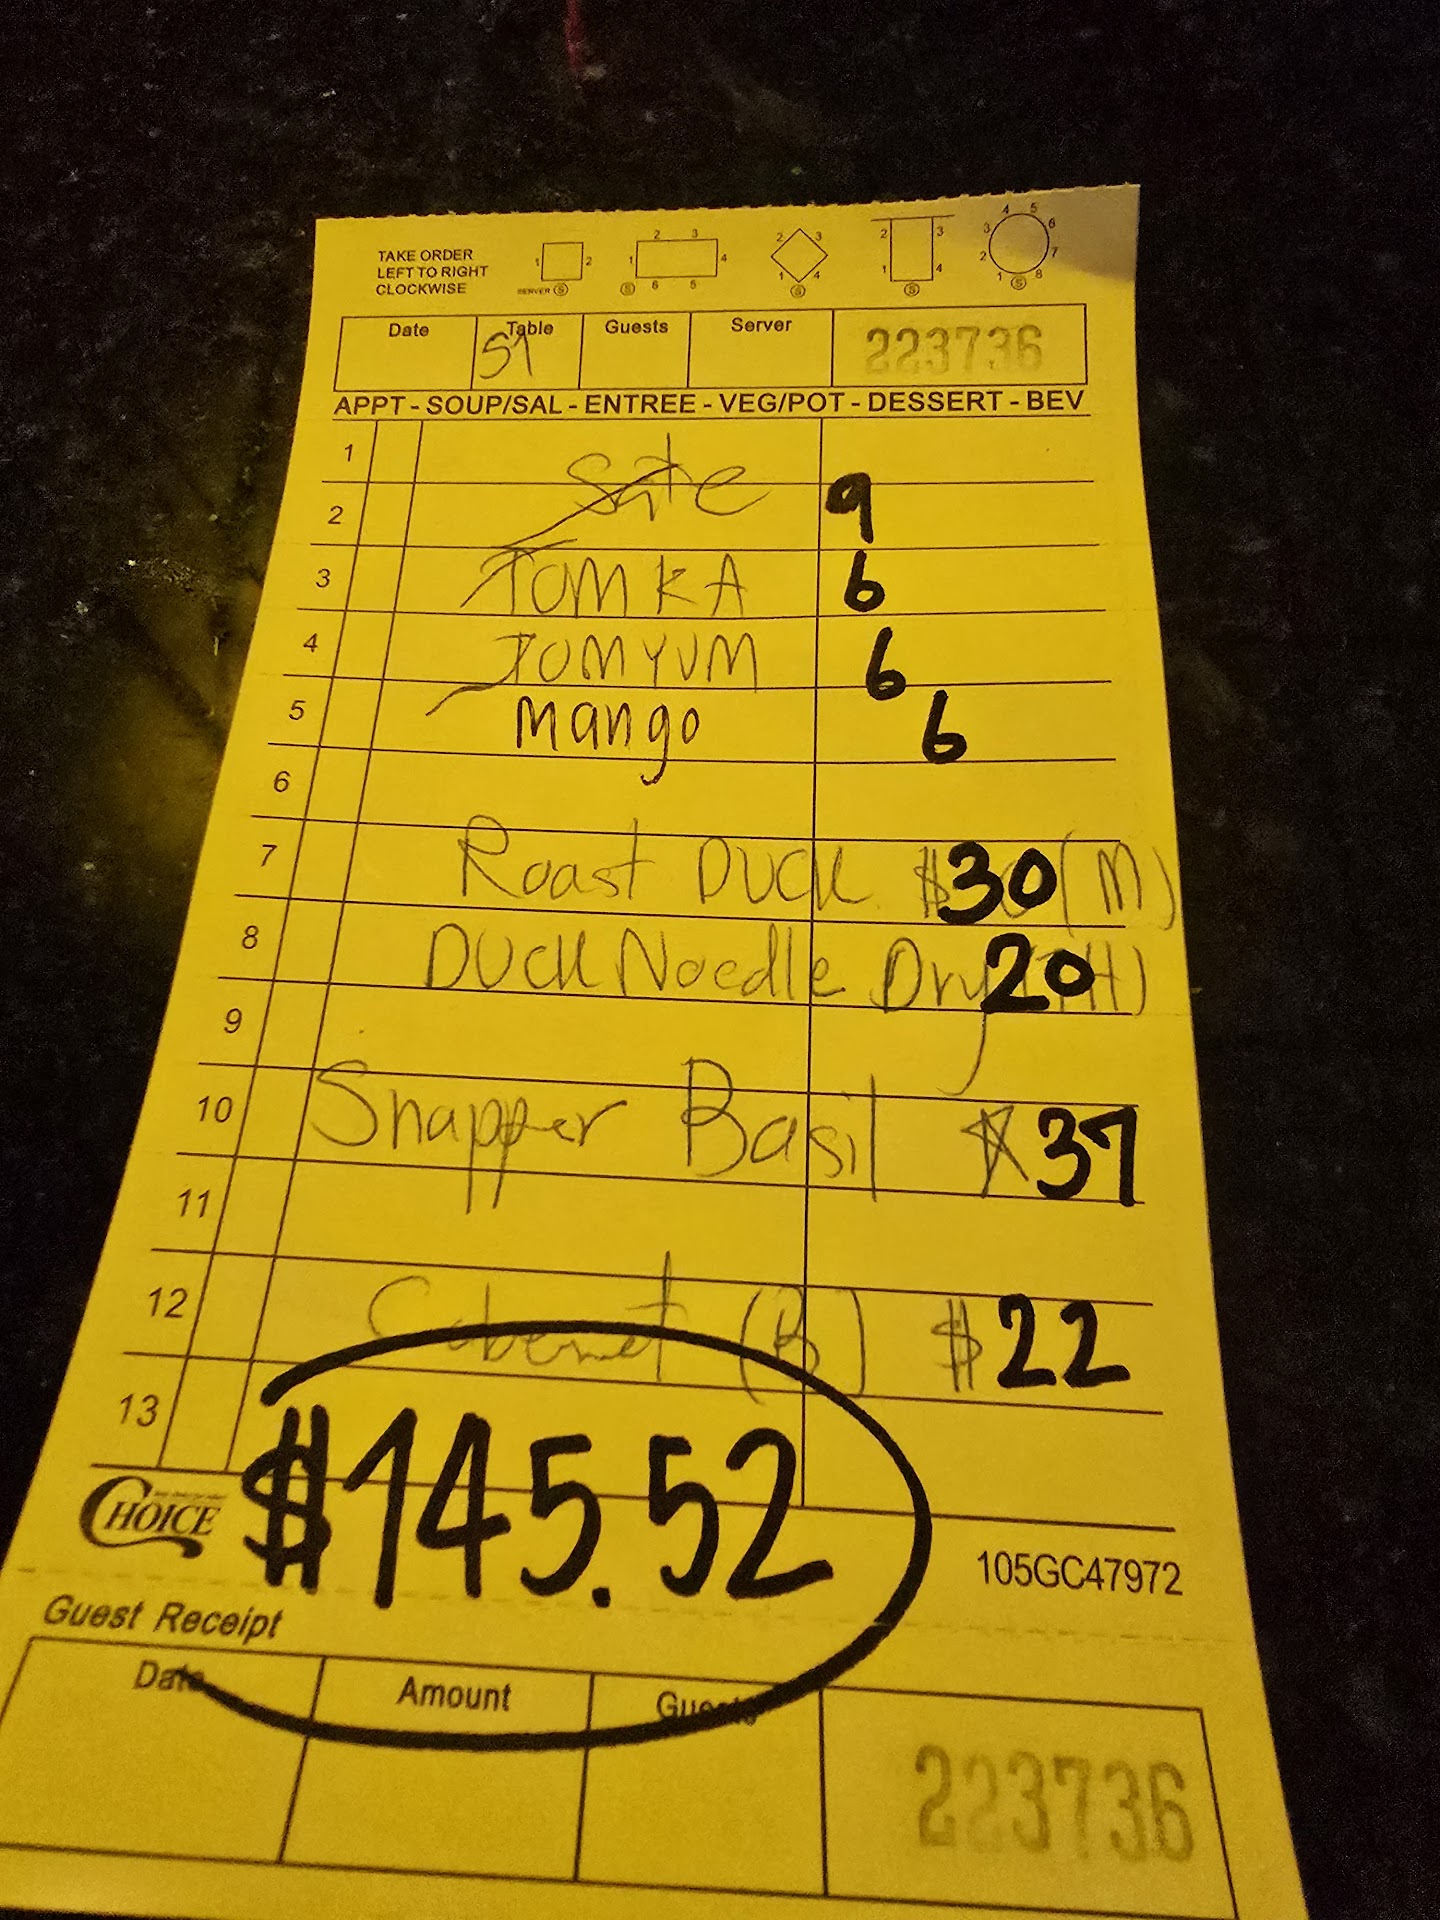 TAKE ORDER
LEFT TO RIGHT
CLOCKWISE
1 2 SERVER S
1 2 3 4 5 6 S
1 2 3 4 S
1 2 3 4 S
1 2 3 4 5 6 7 8 S
Date Table Guests Server 223736
51
APPT - SOUP/SAL - ENTREE - VEG/POT - DESSERT - BEV
1 Sate 9
2
3 TOM KA 6
4 TOM YUM 6
5 Mango 6
6
7 Roast Duck $30 (M)
8 Duck Noodle Dry 20 (TH)
9
10 Snapper Basil 37
11
12 Cabernet (B) $22
13
$145.52
CHOICE 105GC47972
Guest Receipt
Date Amount Guests 223736